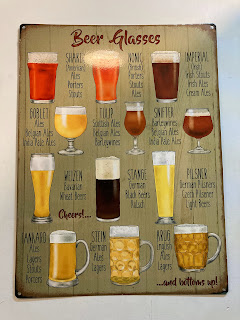 Beer Glasses
SHAKER
(American)
Ales
Porters
Stouts
NONIC
(British)
Porters
Stouts
Ales
IMPERIAL
Irish Stouts
Irish Ales
Cream Ales
GOBLET
Ales
Belgian Ales
India Pale Ales
TULIP
Scottish Ales
Belgian Ales
Barleywines
SNIFTER
Barleywines
Belgian Ales
India Pale Ales
WEIZEN
Bavarian
Wheat Beers
STANGE
German
Black beers
Kolsch
PILSNER
German Pilsners
Czech Pilsners
Light Beers
Cheers!...
TANKARD
Ales
Lagers
Stouts
Porters
STEIN
German
Ales
Lagers
KRUG
English
Ales
Lagers
...and bottoms up!